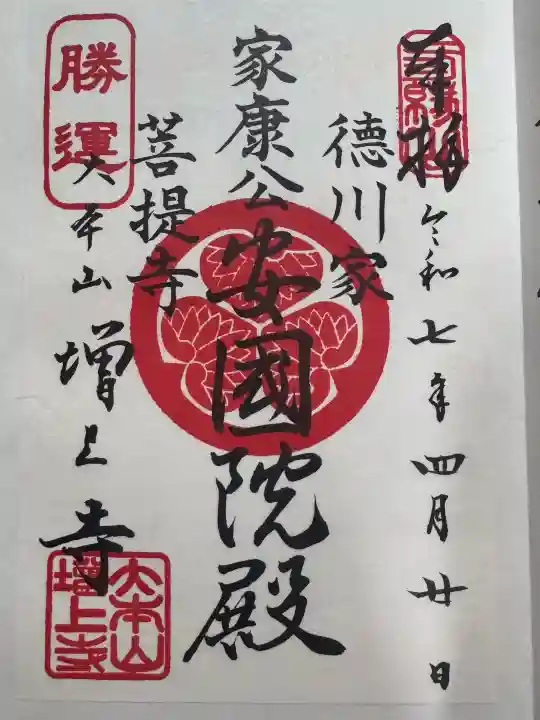 奉拝
令和七年四月廿日
徳川家
家康公
安國院殿
菩提寺
勝運
大本山
増上寺
大本山
増上寺